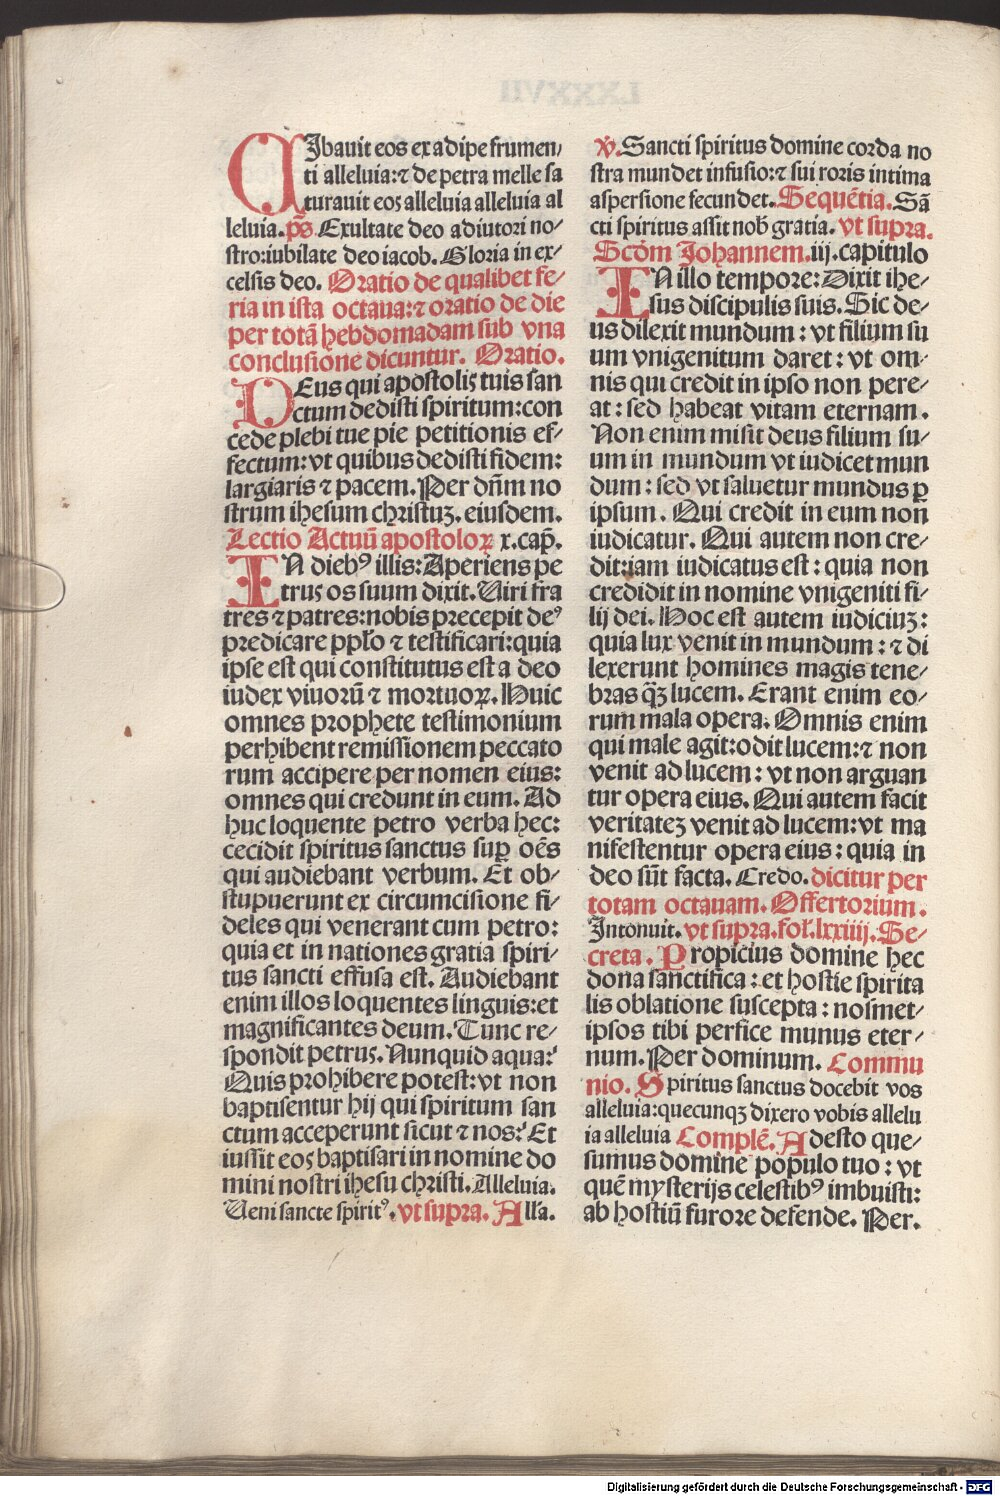 CIbauit eos ex adipe frumen⸗
ti alleluia:⁊ de petra melle sa
turauit eos alleluia alleluia al
leluia. p̄s. Exultate deo adiutori no⸗
stro:iubilate deo iacob. Gloria in ex⸗
celsis deo. Oratio de qualibet fe⸗
ria in ista octaua:⁊ oratio de die
per totā hebdomadam sub vna
conclusione dicuntur. Oratio.
DEus qui apostolis tuis san
ctum dedisti spiritum:con
cede plebi tue pie petitionis ef⸗
fectum:vt quibus dedisti fidem:
largiaris ⁊ pacem. Per dn̄m no
strum ihesum christuꝫ. eiusdem.
Lectio Actuū apostoloꝝ x. cap̄.
IN diebꝰ illis: Aperiens pe
trus os suum dixit. Uiri fra
tres ⁊ patres:nobis precepit deꝰ
predicare ppl̄o ⁊ testificari:quia
ipse est qui constitutus est a deo
iudex viuorū ⁊ mortuoꝝ. Huic
omnes prophete testimonium
perhibent remissionem peccato
rum accipere per nomen eius:
omnes qui credunt in eum. Ad
huc loquente petro verba hec:
cecidit spiritus sanctus sup̲ oēs
qui audiebant verbum. Et ob⸗
stupuerunt ex circumcisione fi⸗
deles qui venerant cum petro:
quia et in nationes gratia spiri⸗
tus sancti effusa est. Audiebant
enim illos loquentes linguis:et
magnificantes deum. Tunc re⸗
spondit petrus. Nunquid aqua:
Quis prohibere potest:vt non
baptisentur hij qui spiritum san
ctum acceperunt sicut ⁊ nos: Et
iussit eos baptisari in nomine do
mini nostri ihesu christi. Alleluia.
Ueni sancte spiritꝰ. vt supra. All̄a.
℣. Sancti spiritus domine corda no
stra mundet infusio:⁊ sui roris intima
aspersione fecundet. Sequētia. Sā
cti spiritus assit nob̄ gratia. vt supra.
Scd̄m Johannem. iij. capitulo
IN illo tempore: Dixit ihe⸗
sus discipulis suis. Sic de⸗
us dilexit mundum : vt filium su
um vnigenitum daret : vt om⸗
nis qui credit in ipso non pere⸗
at : sed habeat vitam eternam.
Non enim misit deus filium su⸗
um in mundum vt iudicet mun
dum : sed vt saluetur mundus ꝑ
ipsum. Qui credit in eum non
iudicatur. Qui autem non cre⸗
dit:iam iudicatus est : quia non
credidit in nomine vnigeniti fi⸗
lij dei. Hoc est autem iudiciuꝫ:
quia lux venit in mundum : ⁊ di
lexerunt homines magis tene⸗
bras q̄ꝫ lucem. Erant enim eo⸗
rum mala opera. Omnis enim
qui male agit:odit lucem:⁊ non
venit ad lucem : vt non arguan
tur opera eius. Qui autem facit
veritateꝫ venit ad lucem:vt ma
nifestentur opera eius : quia in
deo sūt facta. Credo. dicitur per
totam octauam. Offertorium.
Intonuit. vt supra. fol̄. lxxiiij. Se⸗
creta. Propicius domine hec
dona sanctifica : et hostie spirita
lis oblatione suscepta : nosmet⸗
ipsos tibi perfice munus eter⸗
num. Per dominum. Commu
nio. Spiritus sanctus docebit vos
alleluia:quecunqꝫ dixero vobis allelu
ia alleluia Complē. Adesto que⸗
sumus domine populo tuo : vt
quē mysterijs celestibꝰ imbuisti:
ab hostiū furore defende. Per.
Digitalisierung gefördert durch die Deutsche Forschungsgemeinschaft - DFG